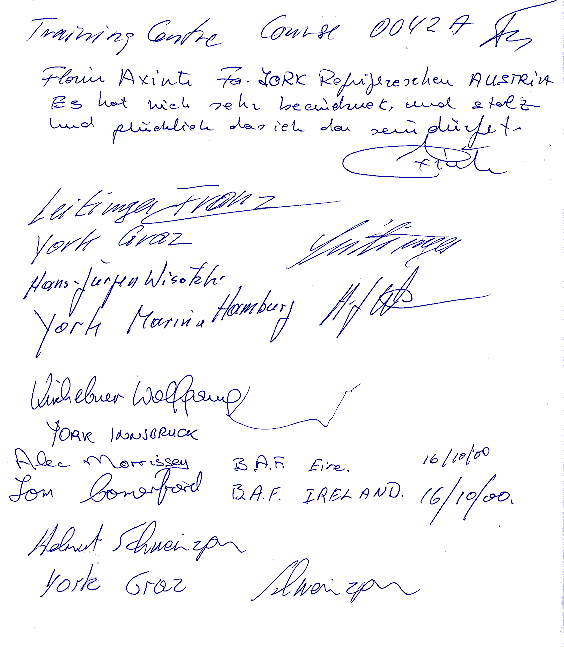 Training Centre Course 0042A
Florin Axinte Fa. YORK Refrigereschen AUSTRIA
Es hat mich sehr beeindruket, und stolz
und glücklich das ich da sein dürfet.
Leitinger Franz
York Graz
Hans-Jürgen Wisotzki
York Marine Hamburg
Kirchebner Wolfgang
YORK INNSBRUCK
Alec Morrissey B.A.F. Eire. 16/10/00
Tom Comerford B.A.F. IRELAND. 16/10/00.
Helmut Schweinzger
York Graz